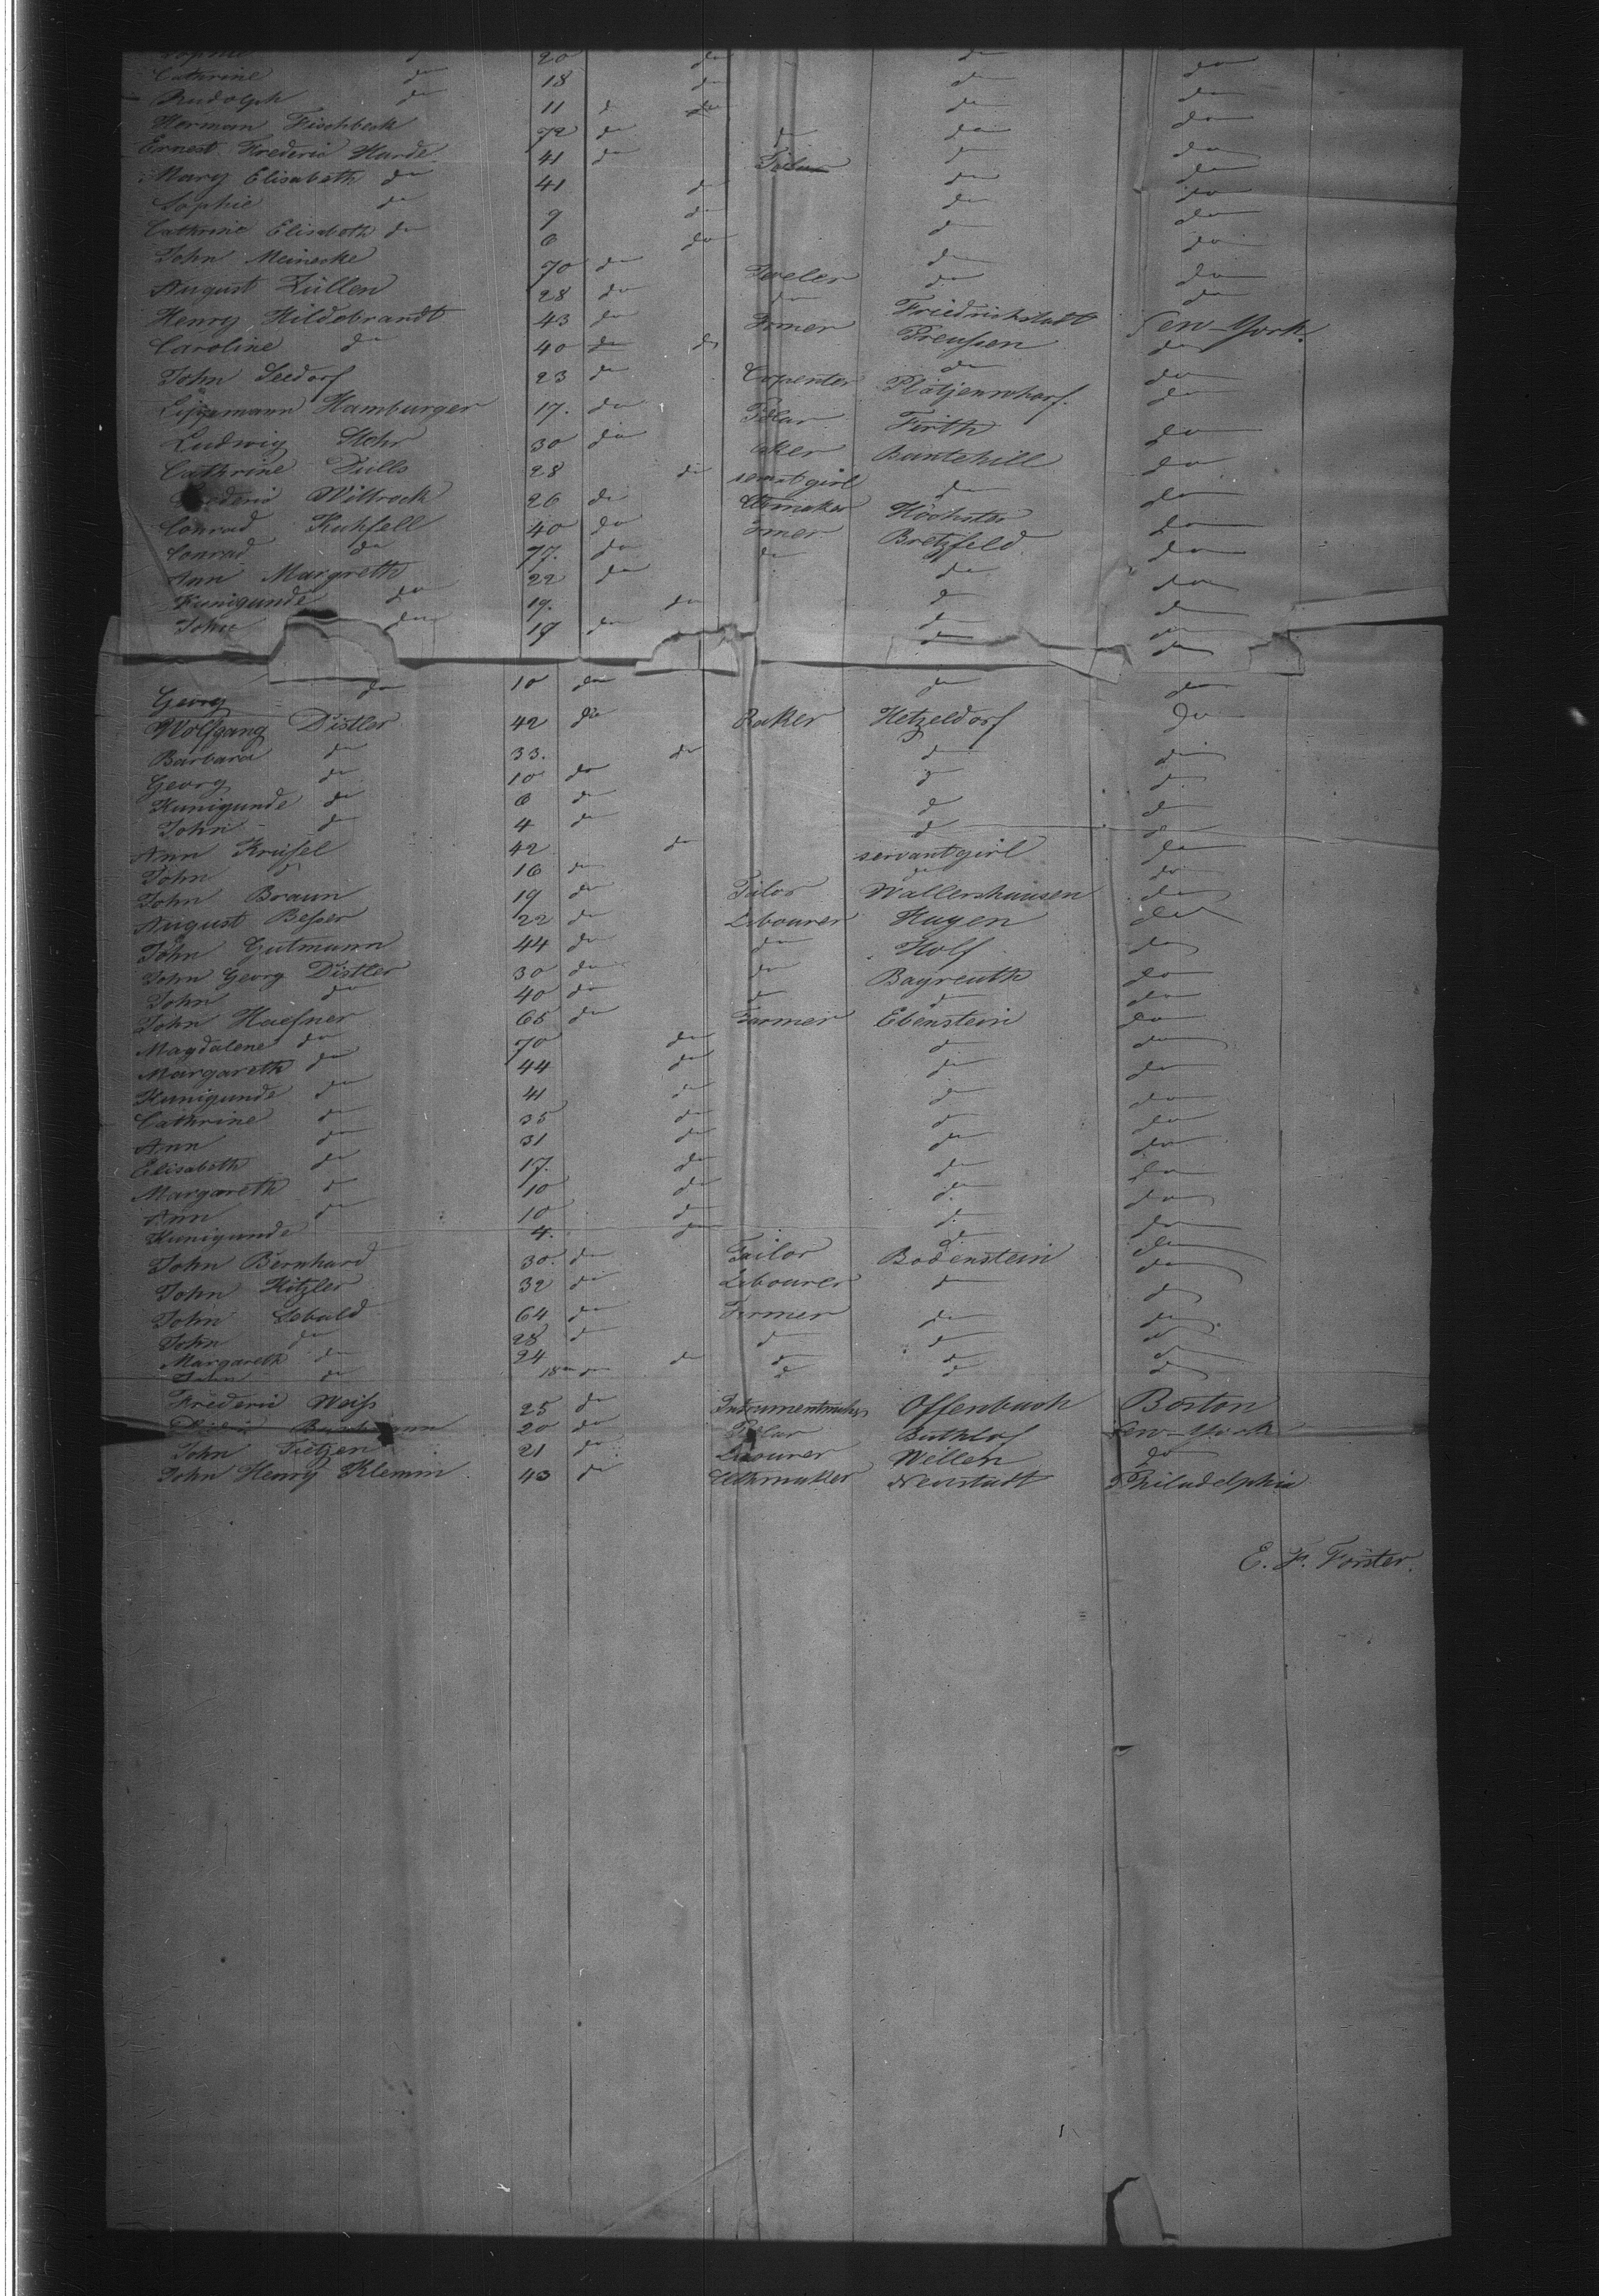 Sophie do 20 do do do
Cathrine do 18 do do do
Rudolph do 11 do do do do
Herman Fischbeck 72 do do do do
Ernest Frederic Harde 41 do do do
Mary Elisabeth do 41 do do do
Sophie do 9 do do do
Cathrine Elisabeth do 6 do do do
John Meinecke 70 do do do
August Züllen 28 do Jeveler do do
Henry Hildebrandt 43 do do Friedrichstadt do
Caroline do 40 do do Preussen New-York
John Seedorf 23 do Carpenter do do
Lippmann Hamburger 17. do Plätjenwharf do
Ludwig Stehr 30 do Fürth do
Cathrine Tülls 28 do servantgirl Buntehill do
Frederic Wittrock 26 do do do
Conrad Kuhfell 40 do Höchster do
Conrad do 77. do do Bretzfeld do
Ann Margreth do 22 do do do
Kunigunde do 19. do do do
John do 19 do do do
Georg do 10 do do do
Wolfgang Distler 42 do Baker Hetzeldorf do
Barbara do 33. do do do
Georg do 10 do do do
Kunigunde do 6 do do do
John do 4 do do do
Ann Krüsel 42 do servantgirl do
John do 16 do do do
John Braun 19 do Tailor Wallershausen do
August Besser 22 do Labourer Hagen do
John Gutmann 44 do do Holf do
John Georg Distler 30 do do Bayreuth do
John do 40 do do do do
John Haefner 65 do Farmer Ebenstein do
Magdalene do 70 do do do
Margareth do 44 do do do
Kunigunde do 41 do do do
Cathrine do 35 do do do
Ann do 31 do do do
Elisabeth do 17. do do do
Margareth do 10 do do do
Ann do 10 do do do
Kunigunde 4. do do do
John Bernhard 30. do Tailor Bodenstein do
John Hitzler 32 do Labourer do do
John Sebald 64 do Farmer do do
John do 28 do do do do
Margareth do 24 do do do do
John do 18 do do do
Frederic Weiss 25 do Instrumentmaker Offenbach Boston
20 do Buthlof New-York
John Tietjen 21 do Labourer Wellen do
John Henry Klemm 43 do Neustadt Philadelphia
E. F. Förster.